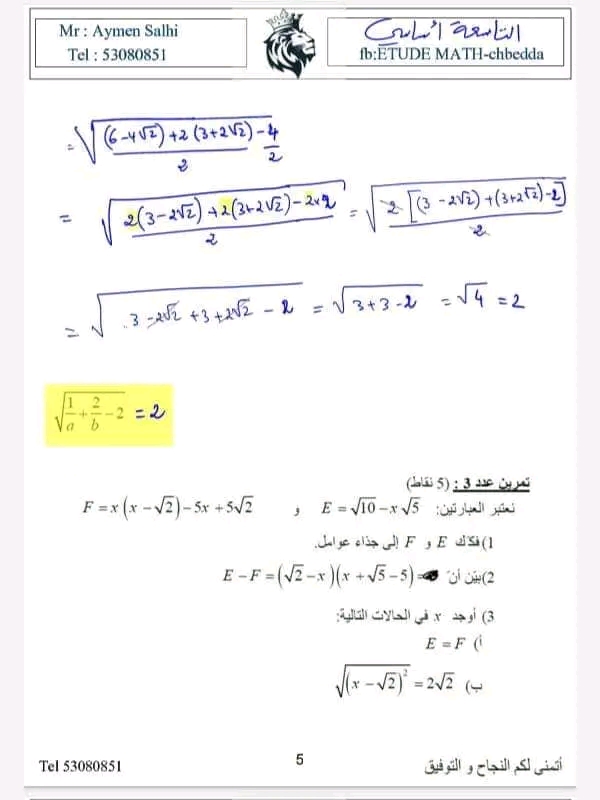 Mr : Aymen Salhi
Tel : 53080851
التاسعة أساسي
fb:ETUDE MATH-chbedda
= √((6-4√2)+2(3+2√2)-4)/2
= √(2(3-2√2)+2(3+2√2)-2×2)/2 = √(2[(3-2√2)+(3+2√2)-2])/2
= √(3-2√2+3+2√2-2) = √(3+3-2) = √4 = 2
√(1/a + 2/b - 2) = 2
تمرين عدد 3 : (5 نقاط)
نعتبر العبارتين: E = √10 - x√5 و F = x(x - √2) - 5x + 5√2
1) فكّك E و F إلى جذاء عوامل.
2) بيّن أنّ E - F = (√2 - x)(x + √5 - 5)
3) أوجد x في الحالات التالية:
أ) E = F
ب) √(x - √2)² = 2√2
Tel 53080851
5
أتمنى لكم النجاح و التوفيق